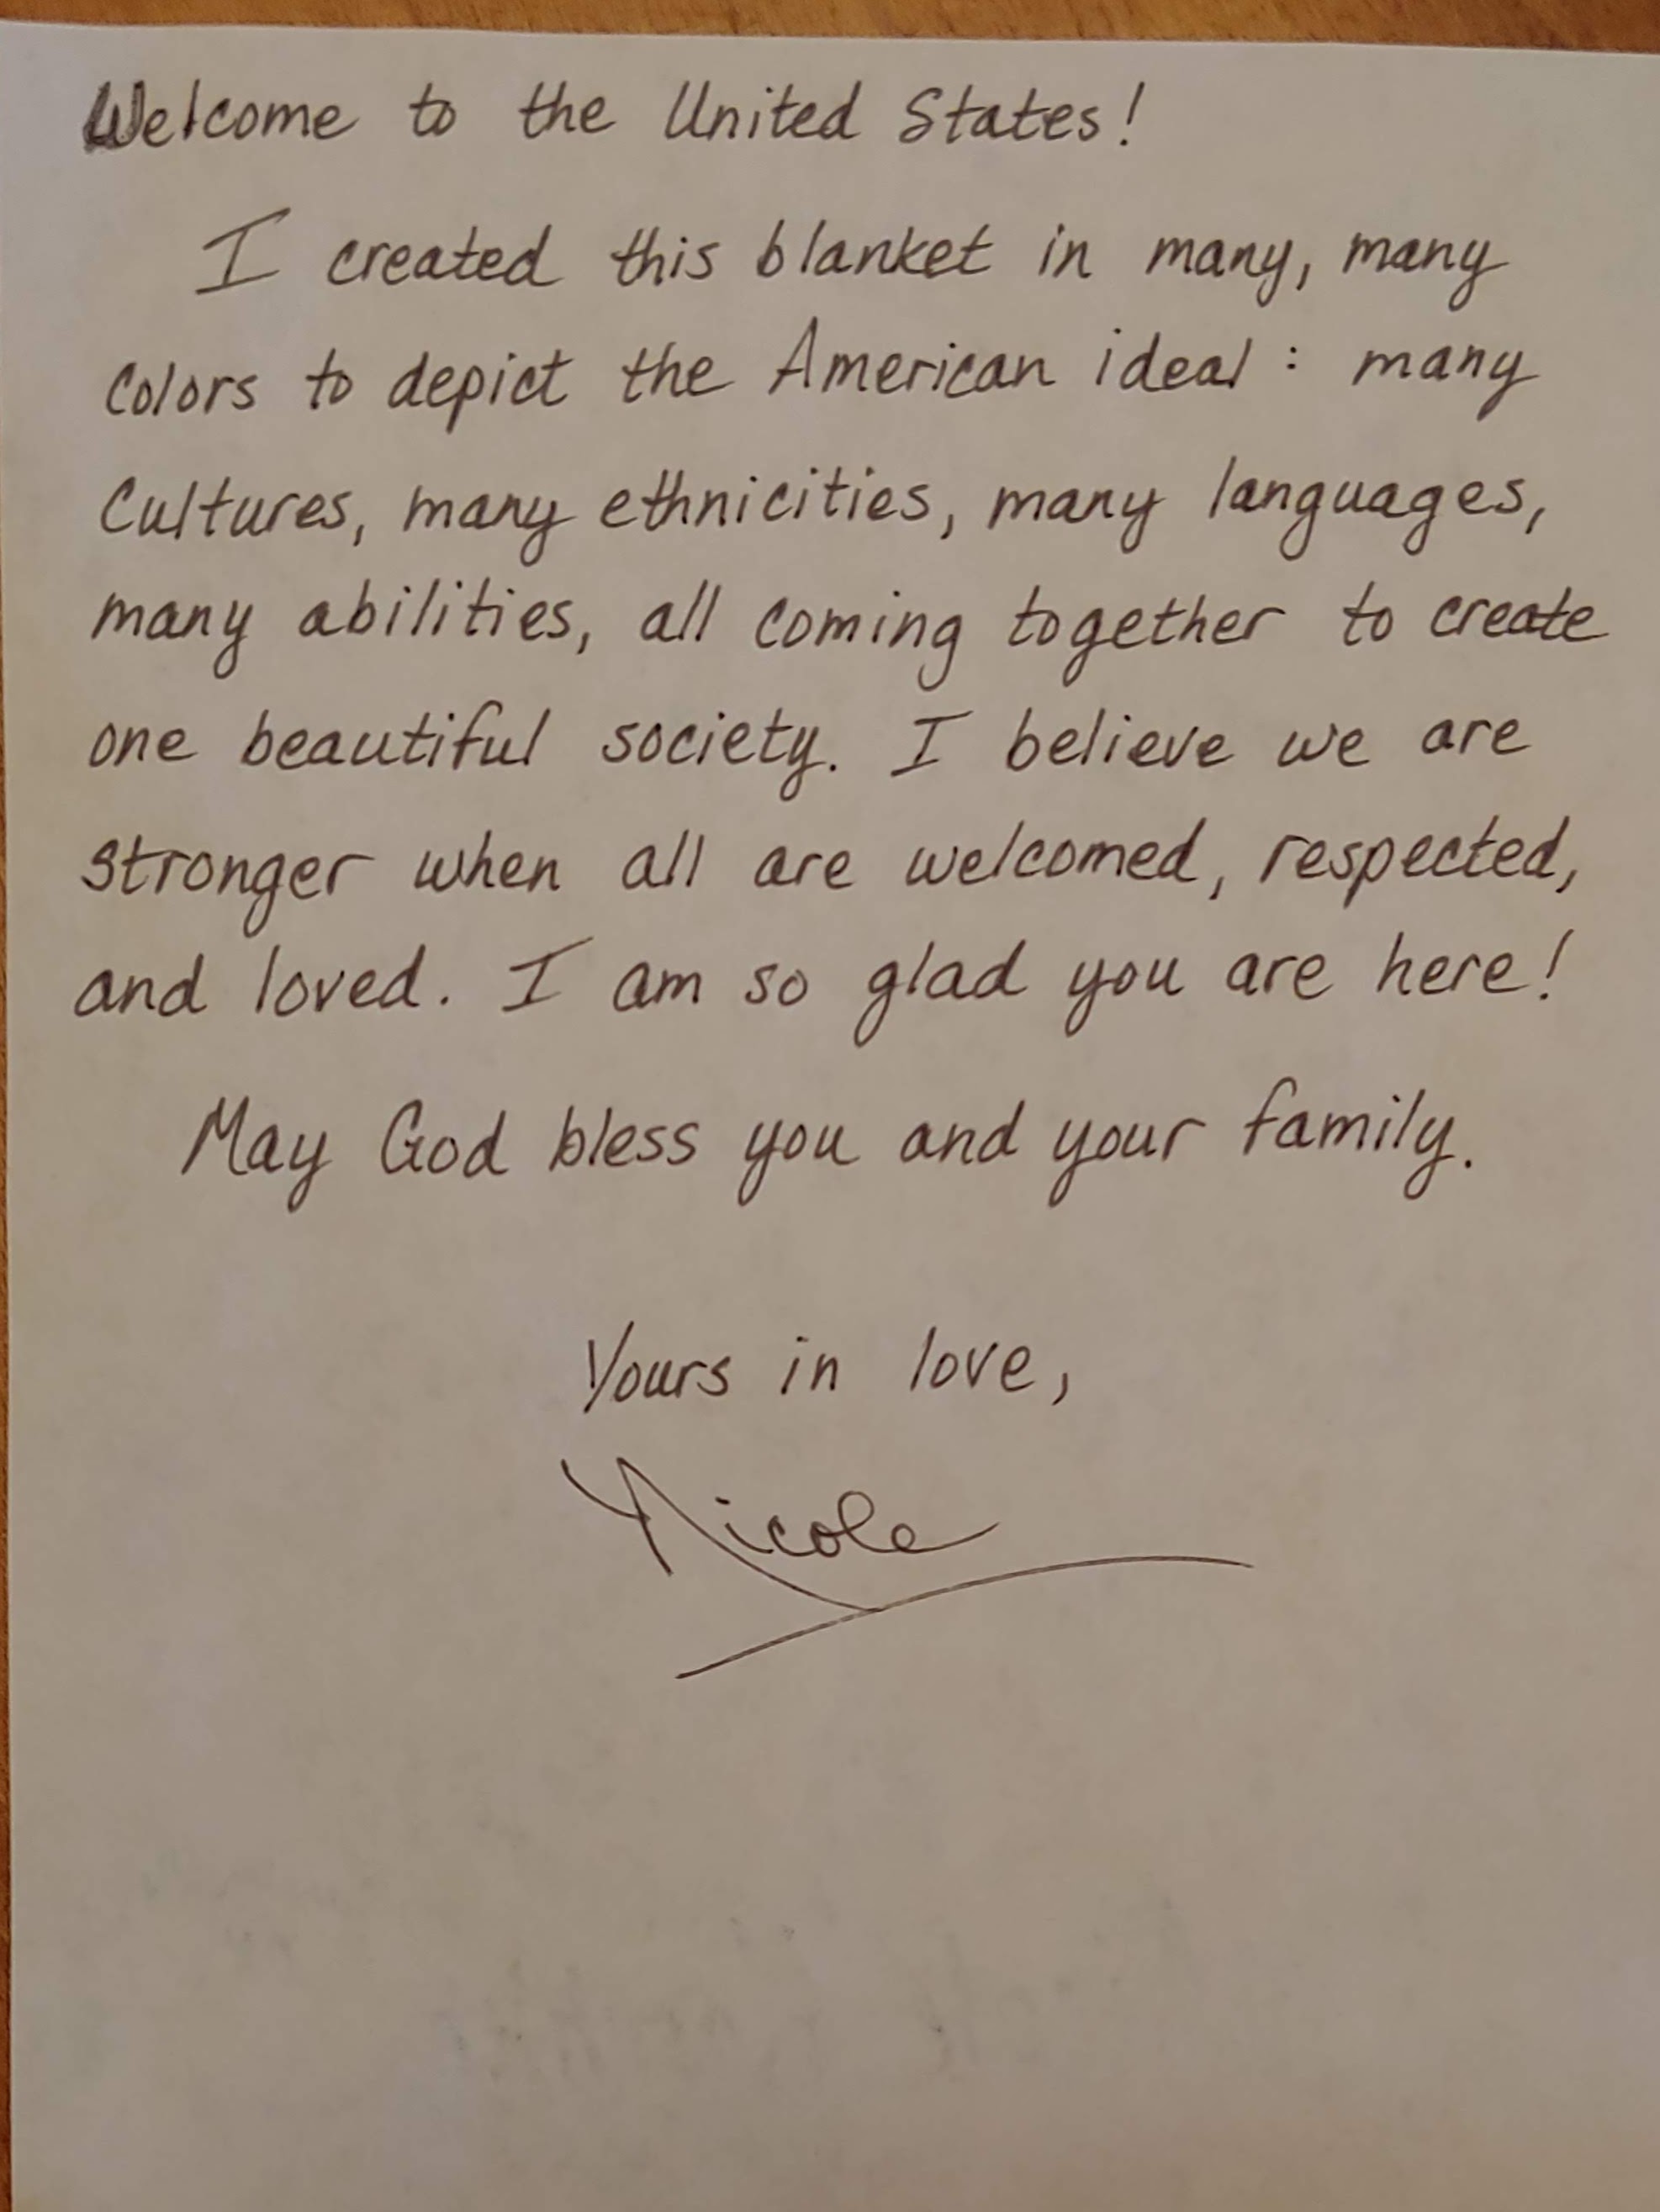 Welcome to the United States!
I created this blanket in many, many
colors to depict the American ideal: many
cultures, many ethnicities, many languages,
many abilities, all coming together to create
one beautiful society. I believe we are
stronger when all are welcomed, respected,
and loved. I am so glad you are here!
May God bless you and your family.
Yours in love,
Nicole